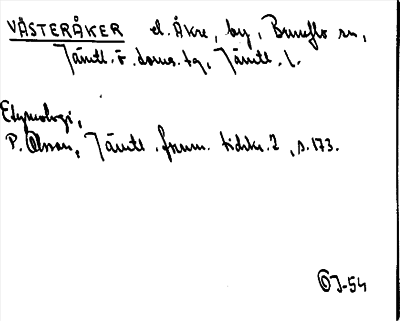 VÄSTERÅKER el. Åkre, by, Brunflo sn,
Jämtl. ö. doms. tg, Jämtl. l.
Etymologi,
P. Olsson, Jämtl. fornm. tidskr. 2, s. 173.
OJ-54